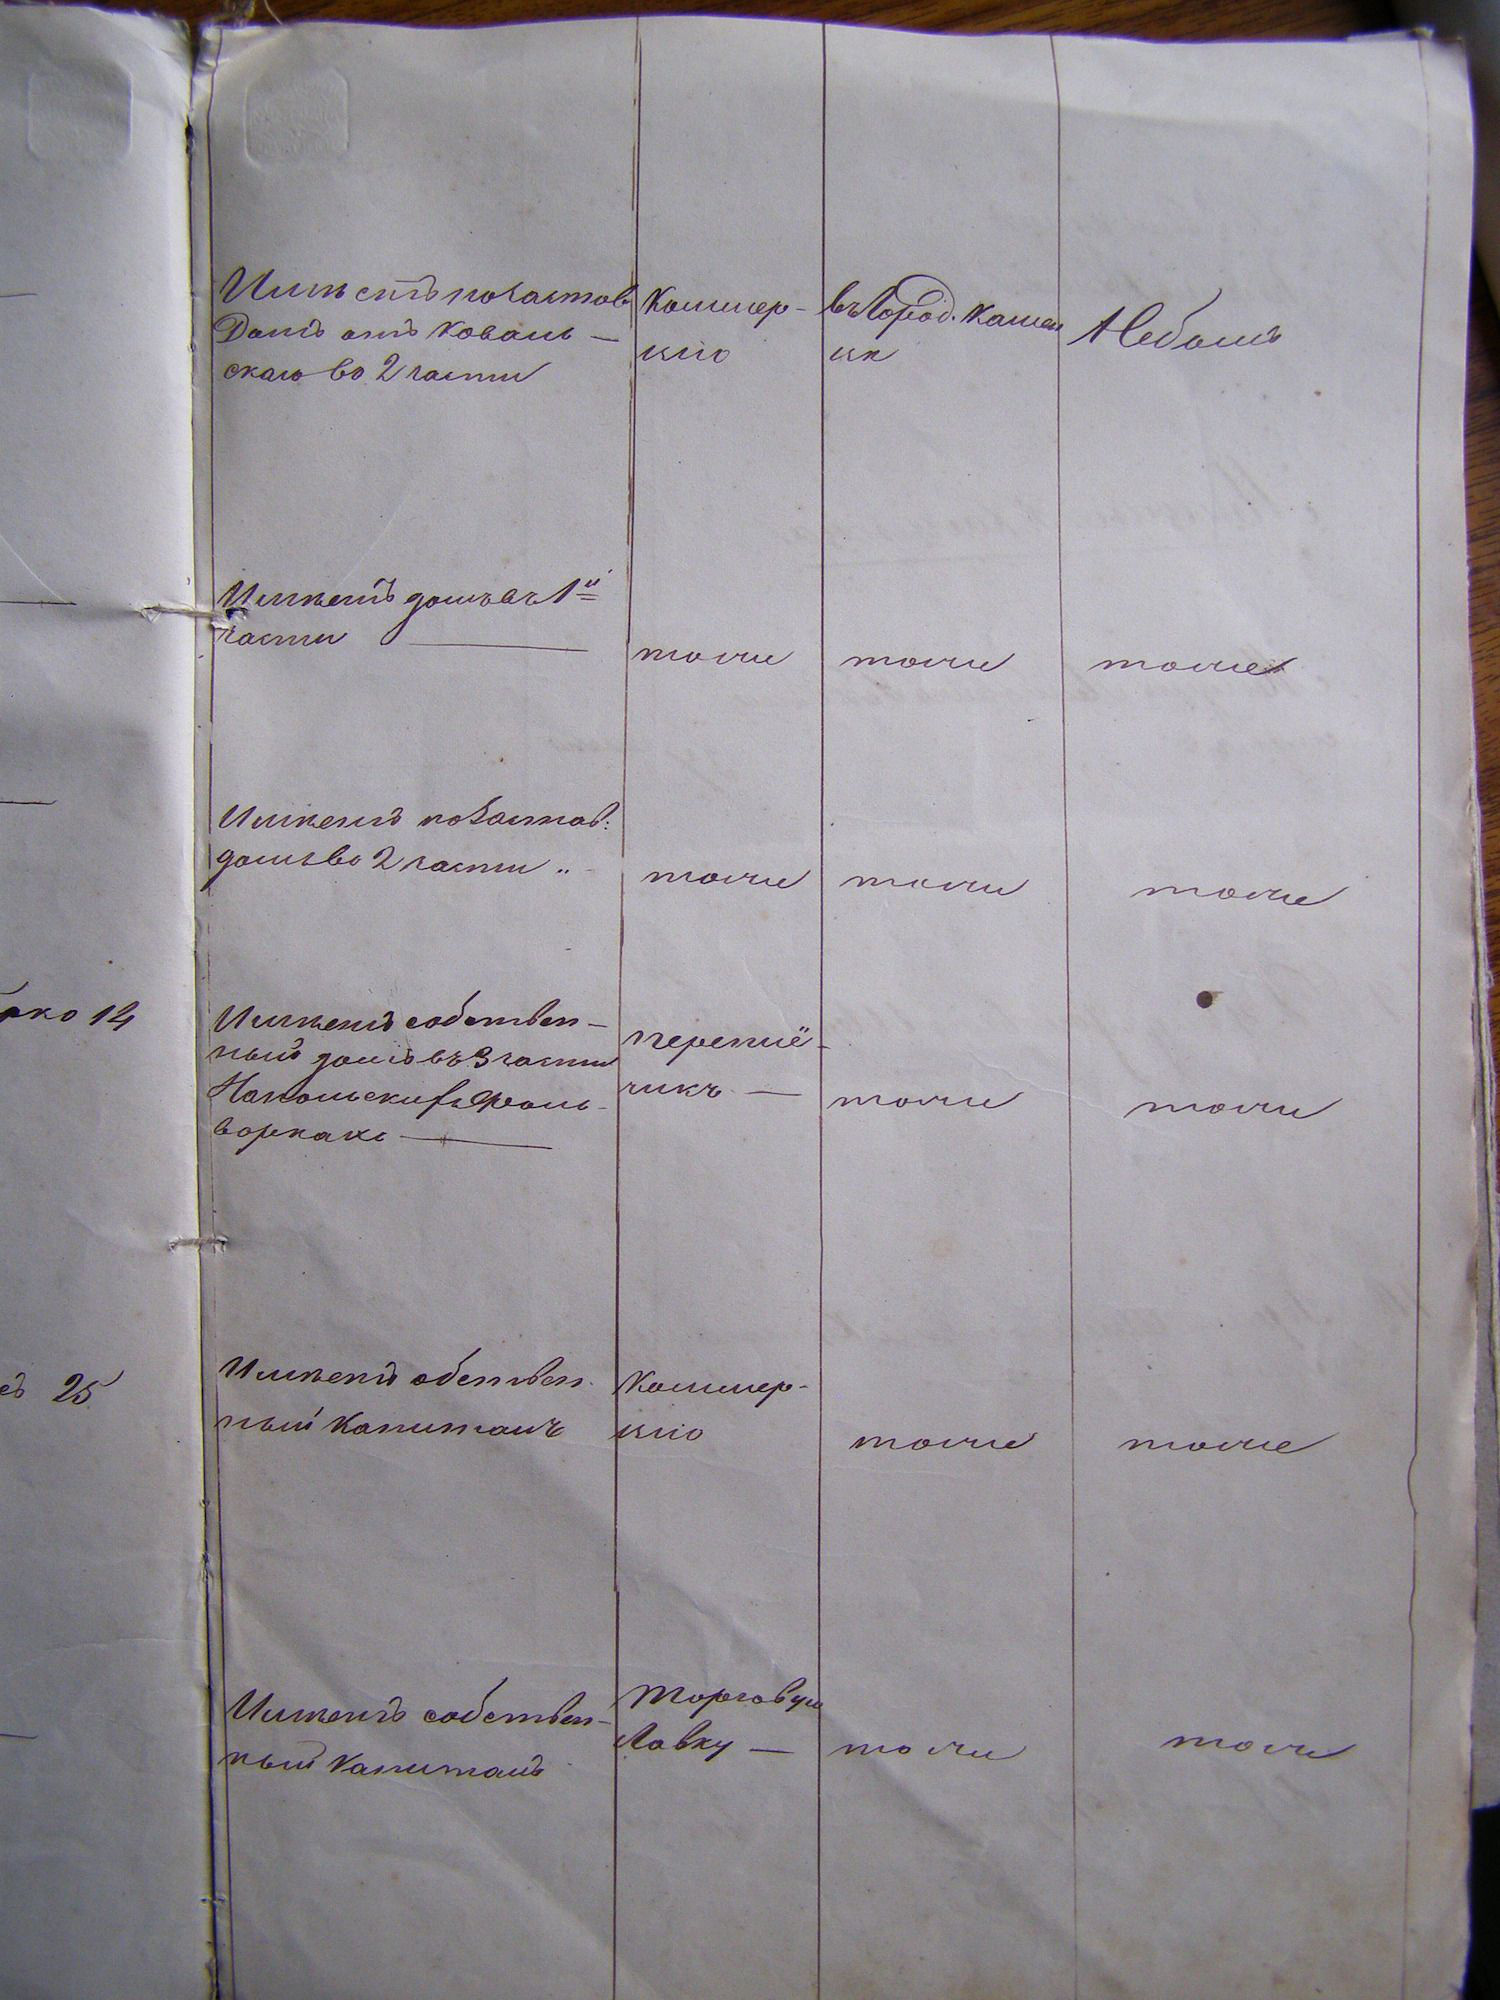 Имѣетъ по частов
Домъ отъ Коваль-
скаго во 2 части
Коммер-
цію
въ Город. Камен
цѣ
Небылъ
Имѣетъ домъ въ 1й
части
тоже
тоже
тоже
Имѣетъ по частов:
домъ во 2 части
тоже
тоже
тоже
рко 14
Имѣетъ собствен-
ный домъ въ 3 части
Напольскихъ Фоль-
варкахъ
переплё-
чикъ
тоже
тоже
25
Имѣетъ обствен-
ный Капиталъ
Коммер-
цію
тоже
тоже
Имѣетъ собствен-
ный Капиталъ
Торговую
Лавку
тоже
тоже